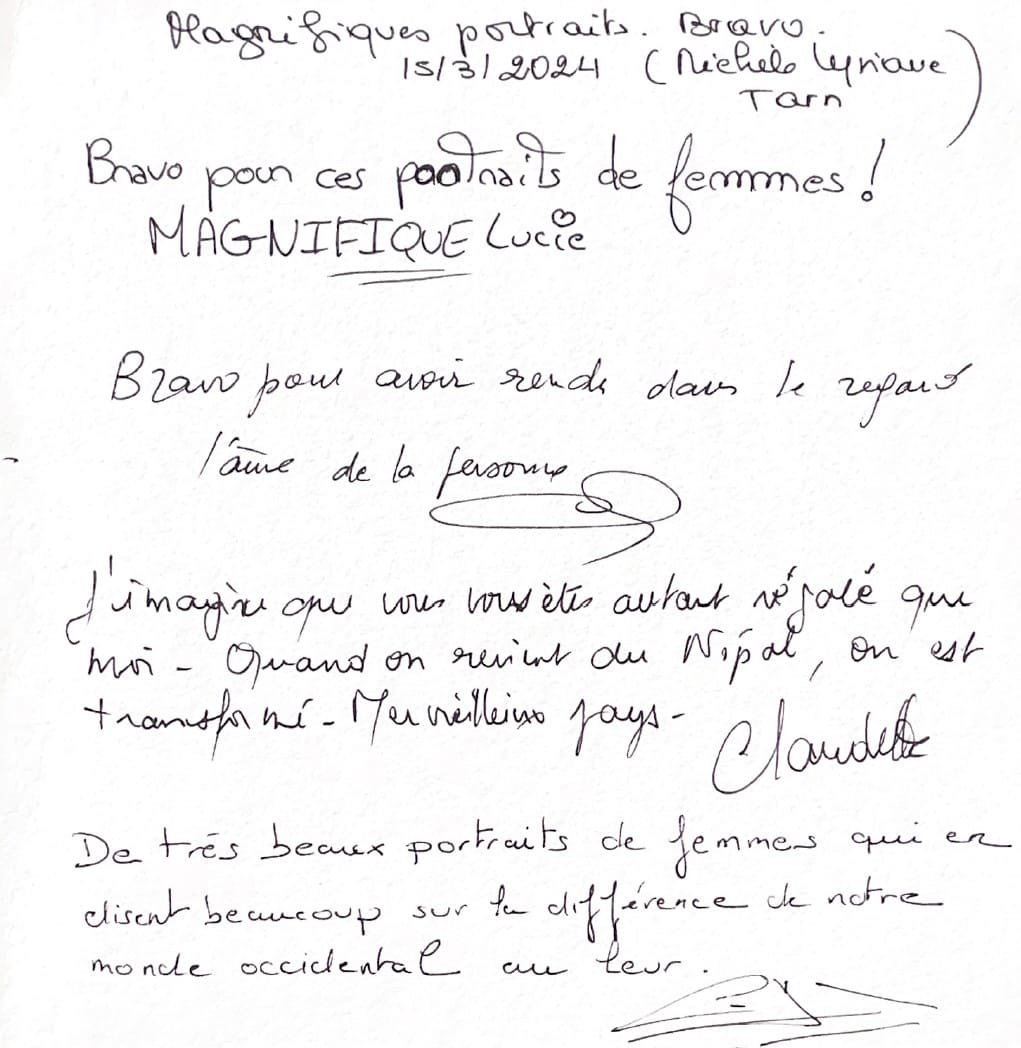 Magnifiques portraits. Bravo.
15/3/2024 (Michèle
Tarn)
Bravo pour ces portraits de femmes !
MAGNIFIQUE Lucie
Bravo pour avoir rendu dans le regard
l'âme de la personne
J'imagine que vous vous êtes autant régalé que
moi - Quand on revient du Népal, on est
transformé - Merveilleux pays -
Claudette
De très beaux portraits de femmes qui en
disent beaucoup sur la différence de notre
monde occidental au leur.